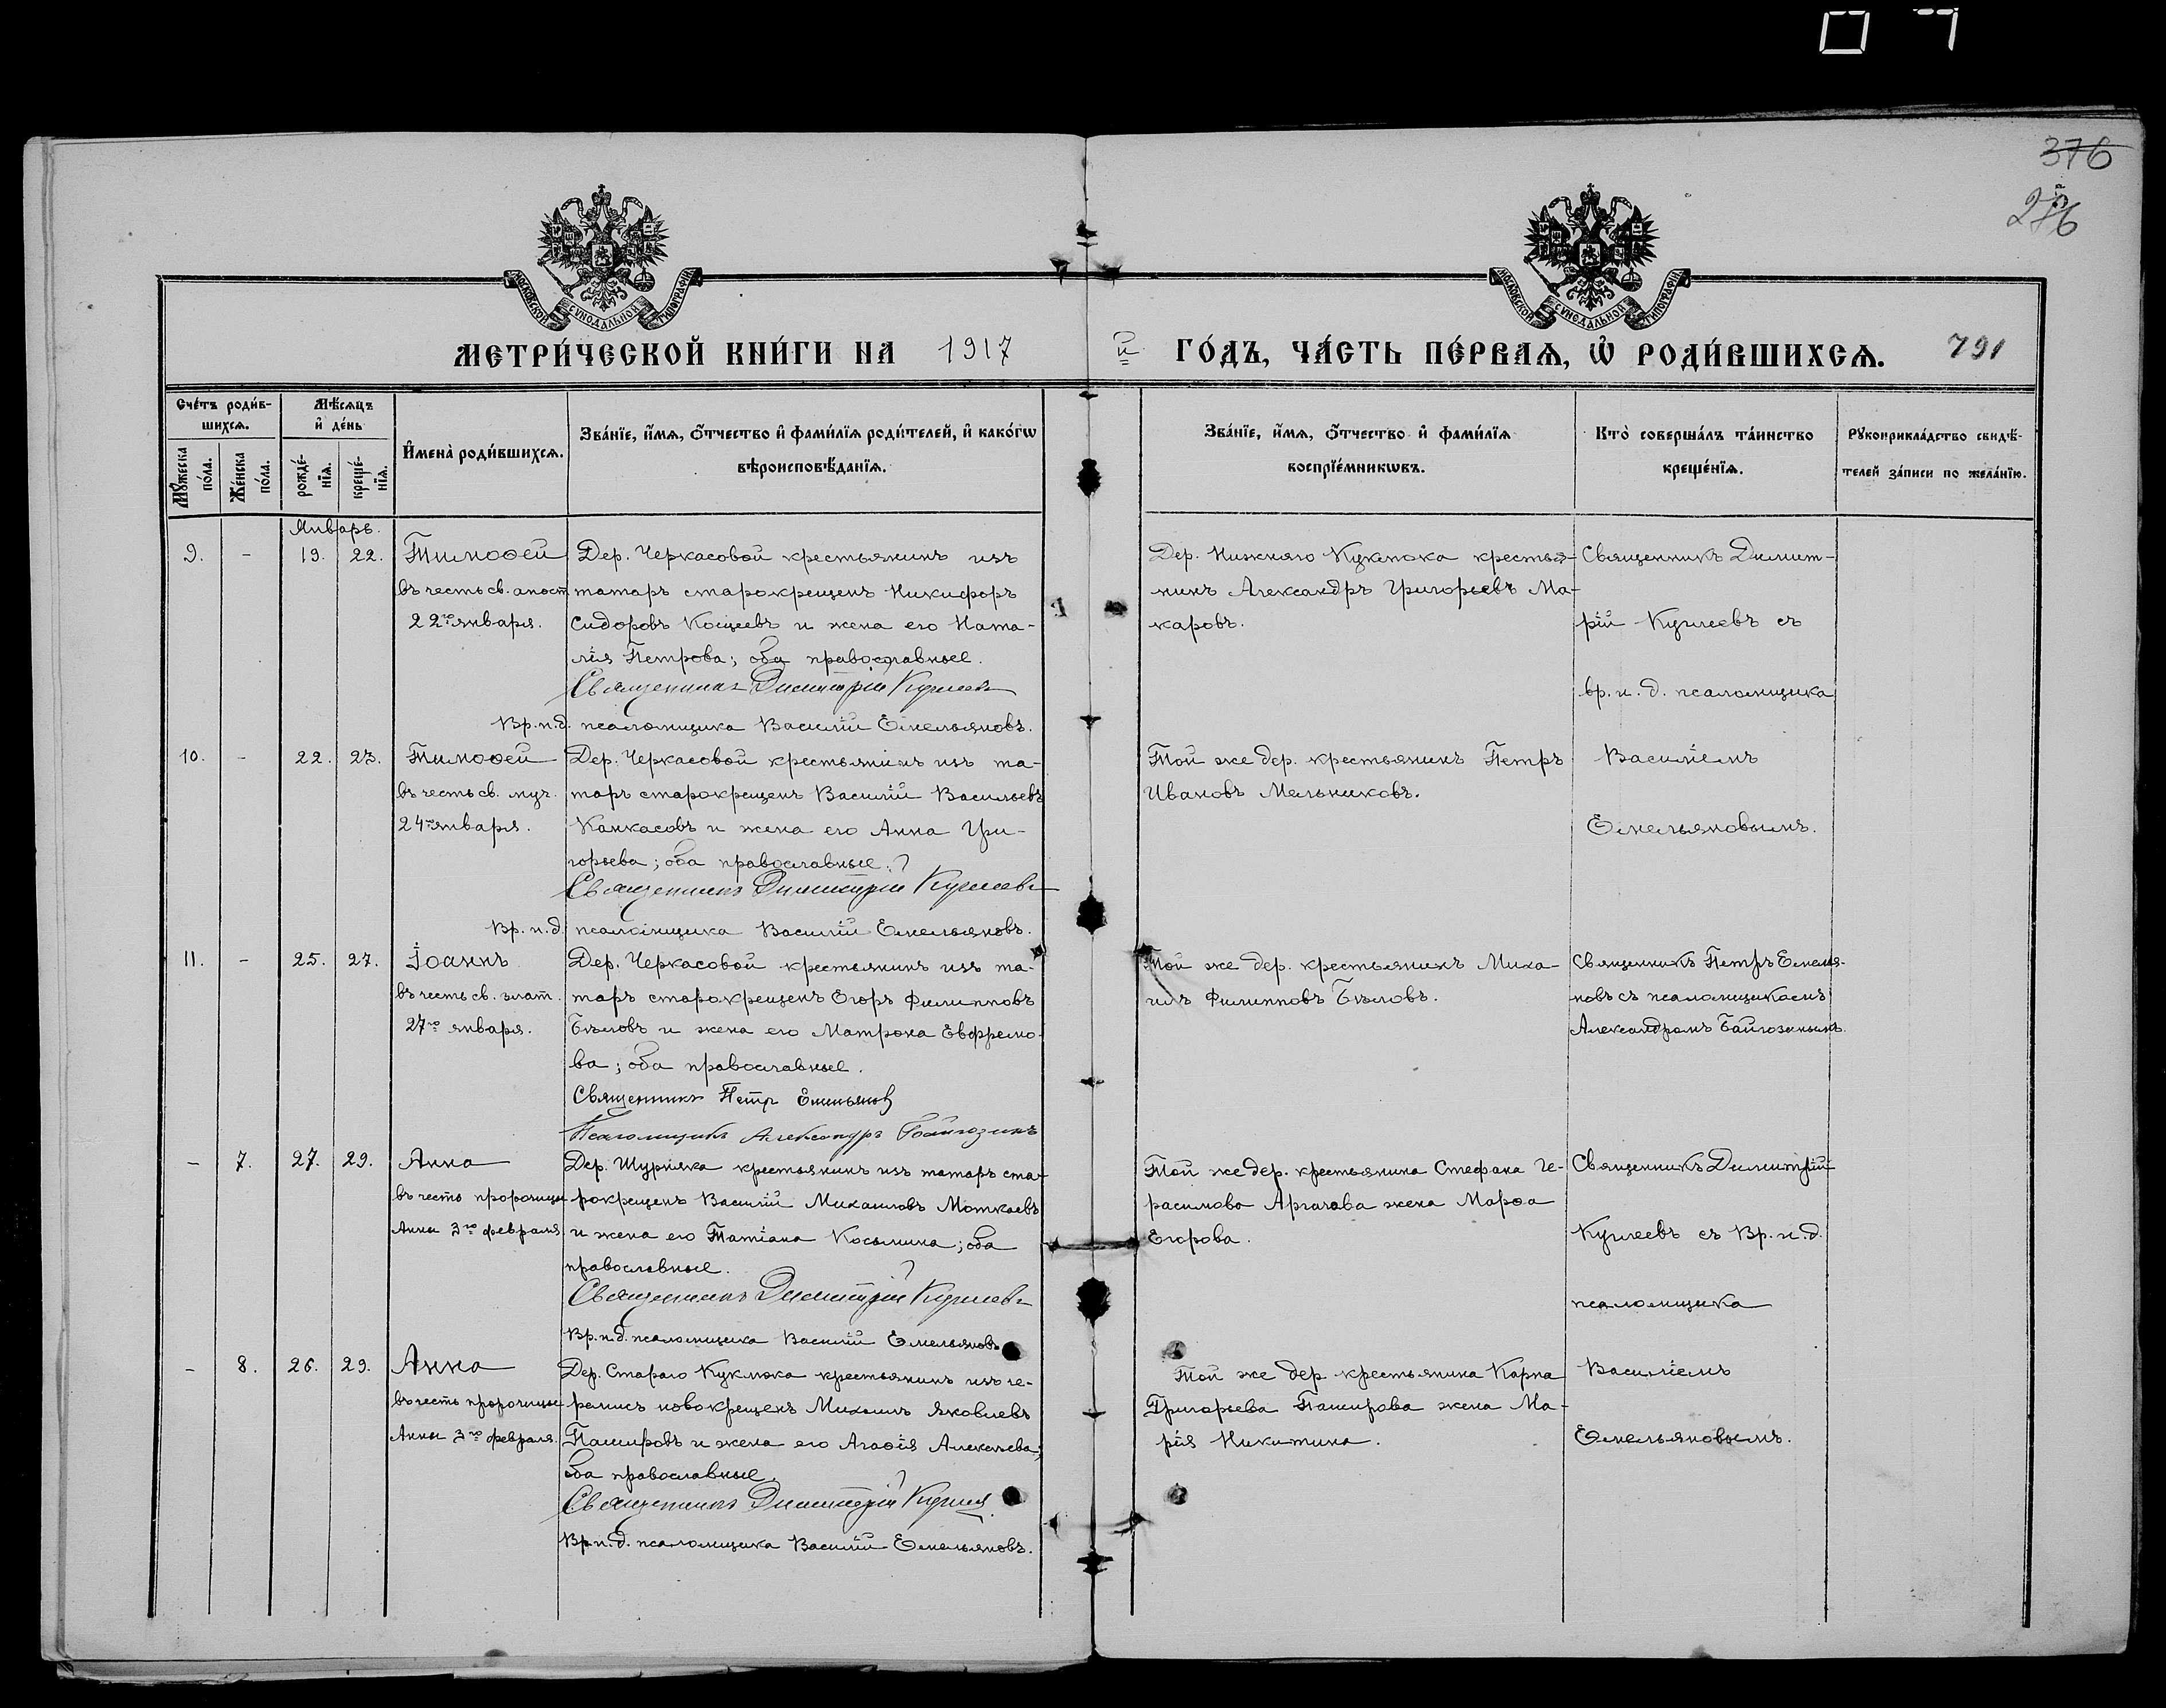 376
286
МОСКОВСКОЙ СѴНОДАЛЬНОЙ ТИПОГРАФІИ
МОСКОВСКОЙ СѴНОДАЛЬНОЙ ТИПОГРАФІИ
МЕТРИ́ЧЕСКОЙ КНИ́ГИ НА 1917 й ГО́ДЪ, ЧА́СТЬ ПЕ́РВАѦ, Ѡ҆ РОДИ́ВШИХСѦ. 791
Сче́тъ роди́в-
шихсѧ.
Мꙋжеска по́ла.
Же́нска по́ла.
Мѣ́сѧцъ
и҆ де́нь
рожде́-
нїѧ.
креще́-
нїѧ.
И҆мена̀ роди́вшихсѧ.
Зва́нїе, и҆́мѧ, ѻ҆́тчество и҆ фами́лїѧ роди́телей, и҆ како́гѡ
вѣроисповѣ́данїѧ.
Зва́нїе, и҆́мѧ, ѻ҆́тчество и҆ фами́лїѧ
воспрїе́мникѡвъ.
Кто̀ соверша́лъ та́инство
креще́нїѧ.
Рꙋкоприкла́дство свидѣ́-
телей за́писи по жела́нїю.
Январь.
9. - 19. 22.
Тимоѳей
въ честь св. апост.
22го января.
Дер. Черкасовой крестьянинъ изъ
татаръ старокрещенъ Никифоръ
Сидоровъ Кощеевъ и жена его Ната-
лія Петрова; оба православные.
Священникъ Димитрій Куглеевъ
Вр. и. д. псаломщика Василій Емельяновъ.
Дер. Нижняго Кукмока крестья-
нинъ Александръ Григорьевъ Ма-
каровъ.
Священникъ Димит-
рій Куглеевъ съ
вр. и. д. псаломщика
Василіемъ
Емельяновымъ.
10. - 22. 23.
Тимоѳей
въ честь св. муч.
24го января.
Дер. Черкасовой крестьянинъ изъ та-
таръ старокрещенъ Василій Васильевъ
Канкасовъ и жена его Анна Гри-
горьева; оба православные.
Священникъ Димитрій Куглеевъ
Вр. и. д. псаломщика Василій Емельяновъ.
Той же дер. крестьянинъ Петръ
Ивановъ Мельниковъ.
11. - 25. 27.
Іоаннъ
въ честь св. злат.
27го января.
Дер. Черкасовой крестьянинъ изъ та-
таръ старокрещенъ Егоръ Филипповъ
Бѣловъ и жена его Матрона Евфремо-
ва; оба православные.
Священникъ Петръ Емельяновъ
Псаломщикъ Александръ Байгозинъ
Той же дер. крестьянинъ Миха-
илъ Филипповъ Бѣловъ.
Священникъ Петръ Емелья-
новъ съ псаломщикомъ
Александромъ Байгозинымъ.
- 7. 27. 29.
Анна
въ честь пророчицы
Анны 3го февраля.
Дер. Шурняка крестьянинъ изъ татаръ ста-
рокрещенъ Василій Михаиловъ Моткаевъ
и жена его Татіана Косьмина; оба
православные.
Священникъ Димитрій Куглеевъ
Вр. и. д. псаломщика Василій Емельяновъ
Той же дер. крестьянина Стефана Ге-
расимова Аргачева жена Марѳа
Егорова.
Священникъ Димитрій
Куглеевъ съ Вр. и. д.
псаломщика
Василіемъ
Емельяновымъ.
- 8. 26. 29.
Анна
въ честь пророчицы
Анны 3го февраля.
Дер. Стараго Кукмока крестьянинъ изъ че-
ремисъ новокрещенъ Михаилъ Яковлевъ
Памировъ и жена его Агаѳія Алексѣева;
оба православные.
Священникъ Димитрій Куглеевъ
Вр. и. д. псаломщика Василій Емельяновъ.
Той же дер. крестьянина Карпа
Григорьева Памирова жена Ма-
рія Никитина.